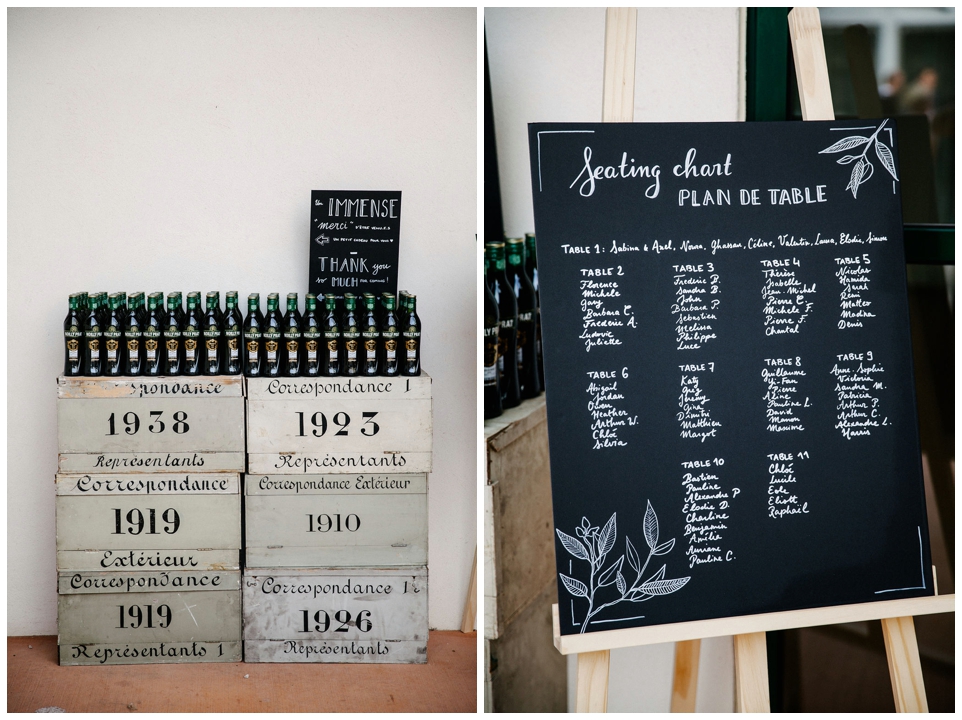 un IMMENSE
"merci" D'ÊTRE VENU.E.S
UN PETIT CADEAU POUR VOUS
THANK you
SO MUCH FOR COMING!
NOILLY PRAT
spondance
1938
Représentants
Correspondance
1919
Extérieur
Correspondance
1919
Représentants 1
Correspondance 1
1923
Représentants
Correspondance Extérieur
1910
Correspondance 1
1926
Représentants
Seating chart
PLAN DE TABLE
TABLE 1: Sabina & Axel, Noura, Ghassan, Céline, Valentin, Laura, Elodie, Simon
TABLE 2
Florence
Michele
Gary
Barbara C.
Frederic A.
Ludovic
Juliette
TABLE 3
Frederic B.
Sandra B.
John
Barbara P.
Sebastien
Melissa
Philippe
Luce
TABLE 4
Thérèse
Isabelle
Jean-Michel
Pierre C.
Michele F.
Pierre F.
Chantal
TABLE 5
Nicolas
Hamida
Sarah
Rémi
Matteo
Madina
Denis
TABLE 6
Abigail
Jordan
Owen
Heather
Arthur W.
Chloé
Silvia
TABLE 7
Katy
Greg
Jeremy
Gina
Dimitri
Matthieu
Margot
TABLE 8
Guillaume
Yi-Fan
Pierre
Aline
Pauline L.
David
Manon
Maxime
TABLE 9
Anne-Sophie
Victoria
Sandra M.
Patricia
Arthur P.
Arthur C.
Alexandre L.
Harris
TABLE 10
Bastien
Pauline
Alexandre P
Elodie D.
Charline
Benjamin
Amélie
Pauline C.
TABLE 11
Chloé
Lucile
Eole
Eliott
Raphaël